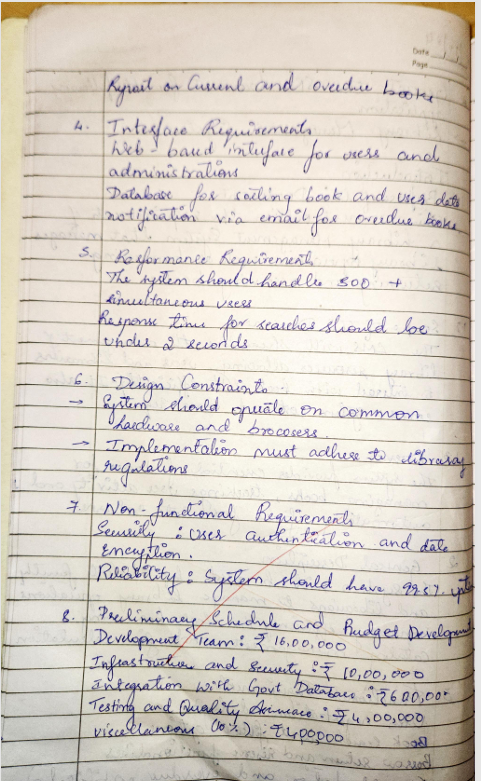 Date
Page
Report on Current and overdue books
4. Interface Requirements
Web-based interface for users and
administrations
Database for soiling book and user data
notification via email for overdue books
5. Performance Requirements
The system should handle 500 +
simultaneous users
Response time for searches should be
under 2 seconds
6. Design Constraints
→ System should operate on common
hardware and brocosers.
→ Implementation must adhere to library
regulations
7. Non-functional Requirements
Security : User authentication and data
Encryption.
Reliability : System should have 99.5%
8. Preliminary Schedule and Budget
Development Team : ₹ 16,00,000
Infrastructure and Security : ₹ 10,00,000
Integration with Govt Database : ₹ 600,000
Testing and Quality Assurance : ₹ 4,00,000
Viscellaneous (10%) ₹ 400000